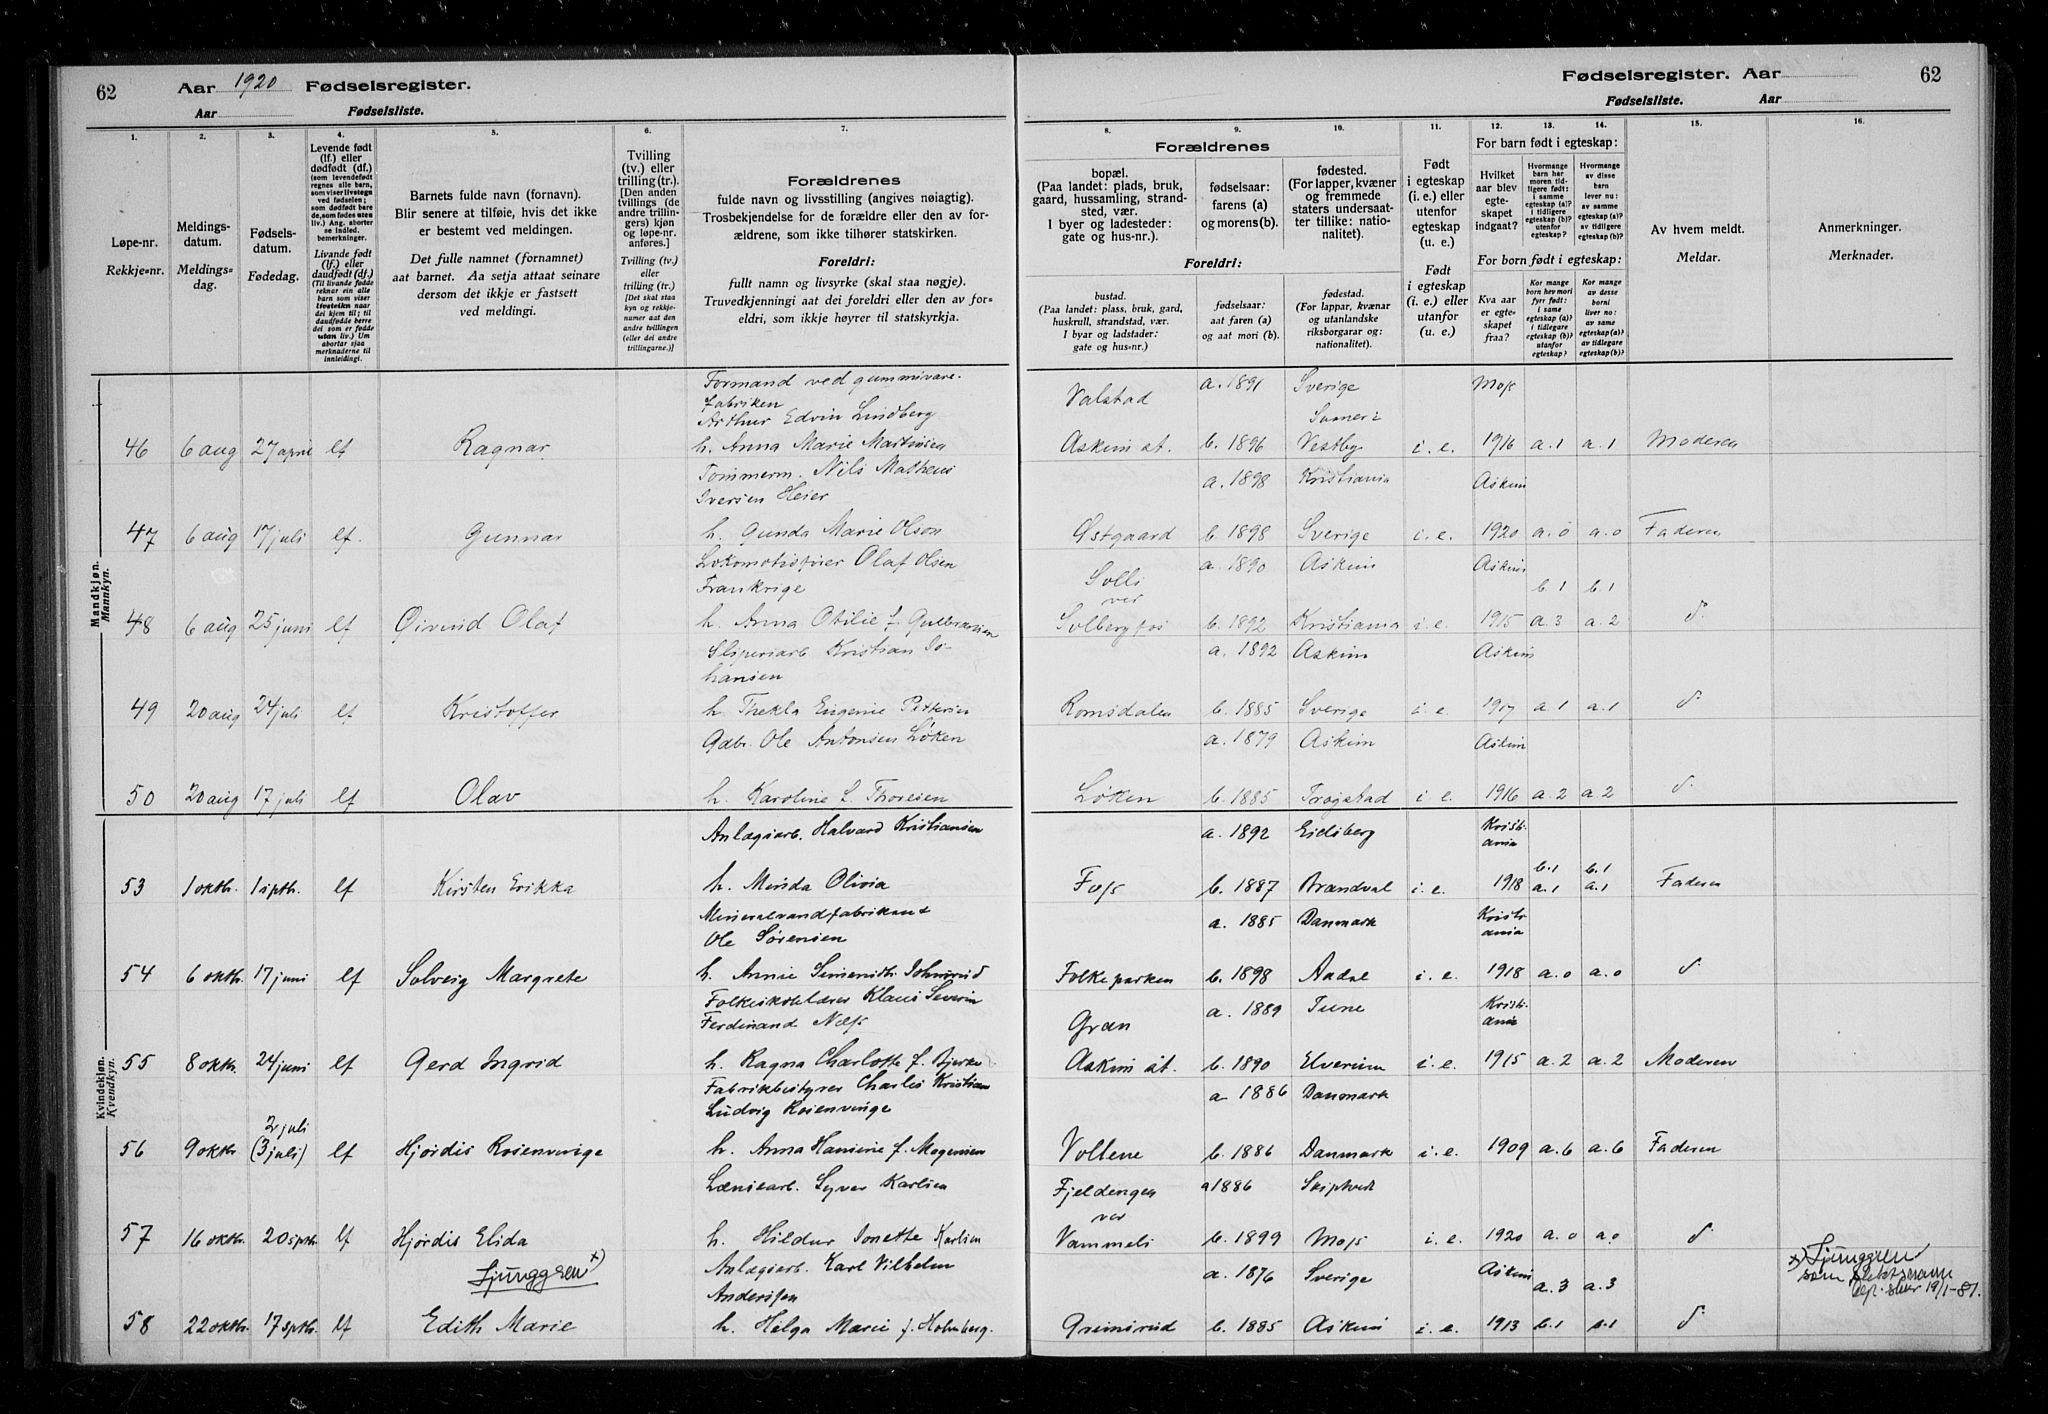 62 Aar 1920 Fødselsregister.
Aar Fødselsliste.
1. 2. 3. 4. 5. 6. 7.
Løpe-nr.
Rekkje-nr.
Meldings-
datum.
Meldings-
dag.
Fødsels-
datum.
Fødedag.
Levende født
(lf.) eller
dødfødt (df.)
(som levendefødt
regnes alle barn,
som viser livstegn
ved fødselen;
som dødfødt bare
de, som fødes uten
liv.) Ang. aborter
se indled.
bemerkninger.
Livande født
(lf.) eller
daudfødt (df.)
(Til livande fødde
reknar ein alle
barn som viser
livsteikn naar
dei kjem til; til
daudfødde berre
dei som er fødde
utan liv.) Um
abortar sjaa
merknaderne til
innleidingi.
Barnets fulde navn (fornavn).
Blir senere at tilføie, hvis det ikke
er bestemt ved meldingen.
Det fulle namnet (fornamnet)
aat barnet. Aa setja attaat seinare
dersom det ikkje er fastsett
ved meldingi.
Tvilling
(tv.) eller
trilling (tr.).
[Den anden
tvillings (de
andre trillin-
gers) kjøn
og løpe-nr.
anføres.]
Tvilling (tv.)
eller
trilling (tr.)
[Det skal staa
kyn og rekkje-
numer aat den
andre tvillingen
(eller dei andre
trillingarne.)]
Forældrenes
fulde navn og livsstilling (angives nøiagtig).
Trosbekjendelse for de forældre eller den av for-
ældrene, som ikke tilhører statskirken.
Foreldri:
fullt namn og livsyrke (skal staa nøgje).
Truvedkjenningi aat dei foreldri eller den av for-
eldri, som ikkje høyrer til statskyrkja.
Mandkjøn.
Mannkyn.
Formand ved gummivare-
fabriken
Arthur Edvin Lindberg
46 6 aug 27 april lf Ragnar h. Anna Marie Martinsen
Tømmerm. Nils Matheus
Iversen Heier
47 6 aug 17 juli lf. Gunnar h. Gunda Marie Olson
Lokomotivfører Olaf Olsen
Frankrige
48 6 aug 25 juni lf Øivind Olaf h. Anna Otilie f. Gulbransen
Sliperiarb. Kristian Jo-
hansen
49 20 aug 24 juli lf Kristoffer h. Thekla Eugenie Pettersen
Gdbr. Ole Antonsen Løken
50 20 aug 17 juli lf Olav h. Karoline f. Thoresen
Kvindekjøn.
Kvendkyn.
Anlægsarb. Halvard Kristiansen
53 1 oktb. 1 septb. lf Kirsten Erikka h. Minda Olivia
Mineralvandfabrikant
Ole Sørensen
54 6 oktb. 17 juni lf Solveig Margrete h. Annie
Folkeskolelærer Klaus Severin
Ferdinand Næss
55 8 oktb. 24 juni lf Gerd Ingrid h. Ragna Charlotte f. Bjerke
Fabrikbestyrer Charles Kristian
Ludvig Rosenvinge
2 juli
56 9 oktb. (3 juli) lf Hjørdis Rosenvinge h. Anna Hansine f. Mogensen
Lænsearb. Syver Karlsen
57 16 oktb. 20 septb. lf Hjørdis Elida h. Hildur Jonette Karlsen
Ljunggren x) Anlægsarb. Karl Vilhelm
Anderssen
58 22 oktb. 17 septb. lf Edith Marie h. Helga Marie f. Holmberg.
Fødselsregister. Aar 62
Fødselsliste. Aar
8. 9. 10. 11. 12. 13. 14. 15. 16.
Forældrenes
bopæl.
(Paa landet: plads, bruk,
gaard, hussamling, strand-
sted, vær.
I byer og ladesteder:
gate og hus-nr.).
fødselsaar:
farens (a)
og morens (b).
fødested.
(For lapper, kvæner
og fremmede
staters undersaat-
ter tillike: natio-
nalitet).
Foreldri:
bustad.
(Paa landet: plass, bruk, gard,
huskrull, strandstad, vær.
I byar og ladstader:
gate og hus-nr.)
fødselsaar:
aat faren (a)
og aat mori (b).
fødestad.
(For lappar, kvænar
og utanlandske
riksborgarar og:
nationalitet).
Født
i egteskap
(i. e.) eller
utenfor
egteskap
(u. e.)
Født
i egteskap
(i. e.) eller
utanfor
(u. e.)
For barn født i egteskap:
Hvilket
aar blev
egte-
skapet
indgaat?
Hvormange
barn har
moren tid-
ligere født:
i samme
egteskap (a)?
i tidligere
egteskap (b)?
utenfor
egteskap?
Hvormange
av disse
barn
lever nu:
av samme
egteskap (a)?
av tidligere
egteskap (b)?
For born født i egteskap:
Kva aar
er egte-
skapet
fraa?
Kor mange
born hev mori
fyrr født:
i same
egteskap (a)?
i tidlegare
egteskap (b)?
utanfor
egteskap?
Kor mange
av desse
borni
liver no:
av same
egteskap (a)?
av tidlegare
egteskap (b)?
Av hvem meldt.
Meldar.
Anmerkninger.
Merknader.
Valstad a. 1891 Sverige Moss
Askim st. b. 1896 Vestby i. e. 1916 a. 1 a. 1 Moderen
a. 1898 Kristiania Askim
Østgaard b. 1898 Sverige i. e. 1920 a. 0 a. 0 Faderen
Solli a. 1890 Askim Askim
ver b. 1 b. 1
Solbergfos b. 1892 Kristiania i. e. 1915 a. 3 a. 2 d.
a. 1892 Askim Askim
Romsdalen b. 1885 Sverige i. e. 1917 a. 1 a. 1 d
a. 1879 Askim Askim
Løken b. 1885 Trøgstad i. e. 1916 a. 2 a. 2 d.
a. 1892 Eidsberg Kristi-
ania
b. 1 b. 1
Foss b. 1887 Brandval i. e. 1918 a. 1 a. 1 Faderen
a. 1885 Danmark Kristi-
ania
Folkeparken b. 1898 Aadal i. e. 1918 a. 0 a. 0 d.
Gran a. 1889 Tune Kristi-
ania
Askim st. b. 1890 Elverum i. e. 1915 a. 2 a. 2 Moderen
a 1886 Danmark
Voltene b. 1886 Danmark i. e. 1909 a. 6 a. 6 Faderen
Fjeldengen a 1886 Skiptvedt
ver
Vammeli b. 1899 Moss i. e. 1920 a. 0 a. 0 d
a. 1876 Sverige Askim a. 3 a. 3
x) Ljunggren
som slektsnavn
19/1-81.
Grimsrud b. 1885 Askim i. e. 1913 b. 1 b. 1 d